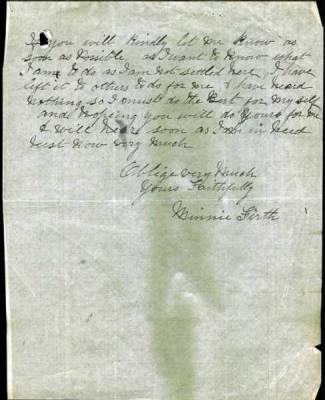 If you will kindly let me know as
soon as Posible as I want to know what
I am to do as I am not settled here, I have
left it to others to do for me, & have heard
nothing so I must do the Best for My self
and Hopeing you will do Yours for me
I will hear soon as I am in need
Just Now very Much
Oblige very Much
Yours Faithfully
Minnie Firth